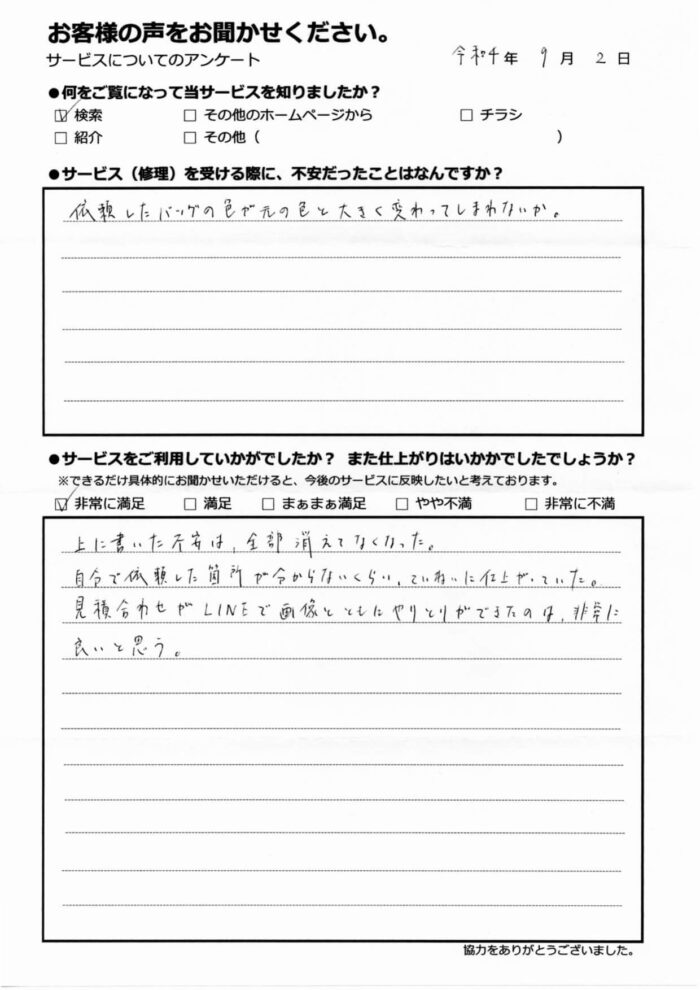 お客様の声をお聞かせください。
サービスについてのアンケート
令和4年 9月 2日
●何をご覧になって当サービスを知りましたか？
☑ 検索 □ その他のホームページから □ チラシ
□ 紹介 □ その他（ ）
●サービス（修理）を受ける際に、不安だったことはなんですか？
依頼したバッグの色が元の色と大きく変わってしまわないか。
●サービスをご利用していかがでしたか？ また仕上がりはいかかでしたでしょうか？
※できるだけ具体的にお聞かせいただけると、今後のサービスに反映したいと考えております。
☑ 非常に満足 □ 満足 □ まぁまぁ満足 □ やや不満 □ 非常に不満
上に書いた不安は、全部消えてなくなった。
自分で依頼した箇所が分からないくらい、ていねいに仕上がっていた。
見積合わせがLINEで画像とともにやりとりができたのは、非常に
良いと思う。
協力をありがとうございました。